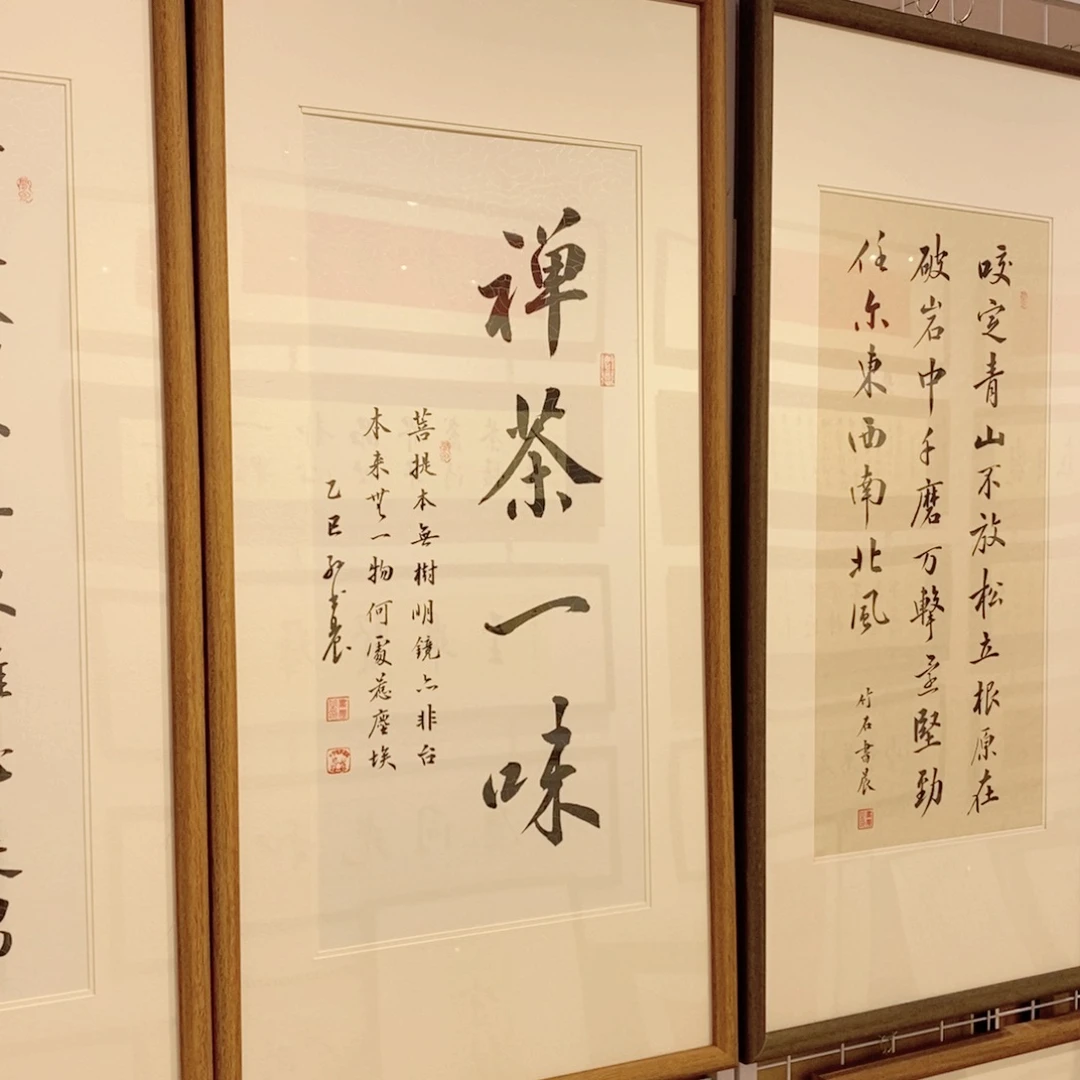 禅茶一味
菩提本無樹明鏡亦非台
本来無一物何處惹塵埃
乙巳
咬定青山不放松立根原在
破岩中千磨万擊还堅勁
任尔東西南北風
竹石書晨